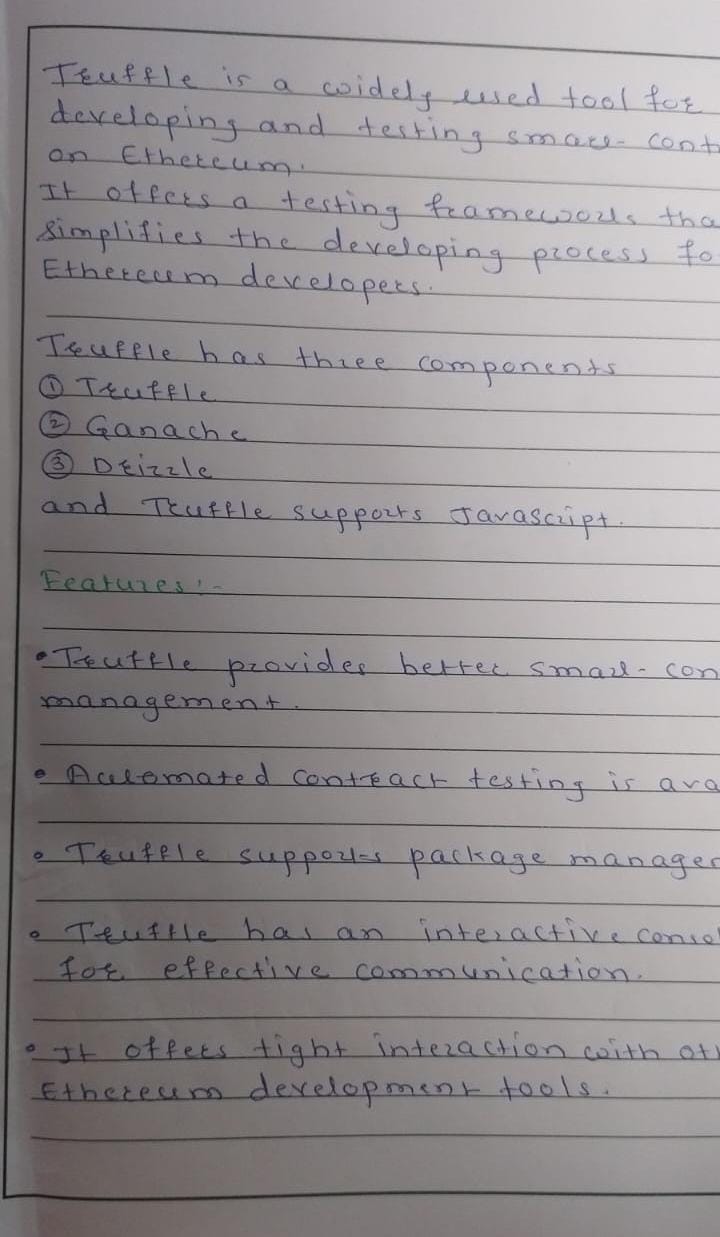 Truffle is a widely used tool for
developing and testing smart-cont
on Ethereum.
It offers a testing framework tha
simplifies the developing process fo
Ethereum developers.
Truffle has three components
① Truffle
② Ganache
③ Drizzle
and Truffle supports Javascript.
Features:-
• Truffle provides better smart-con
management.
• Automated contract testing is ava
• Truffle supports package manage
• Truffle has an interactive conso
for effective communication.
• It offers tight interaction with ot
Ethereum development tools.